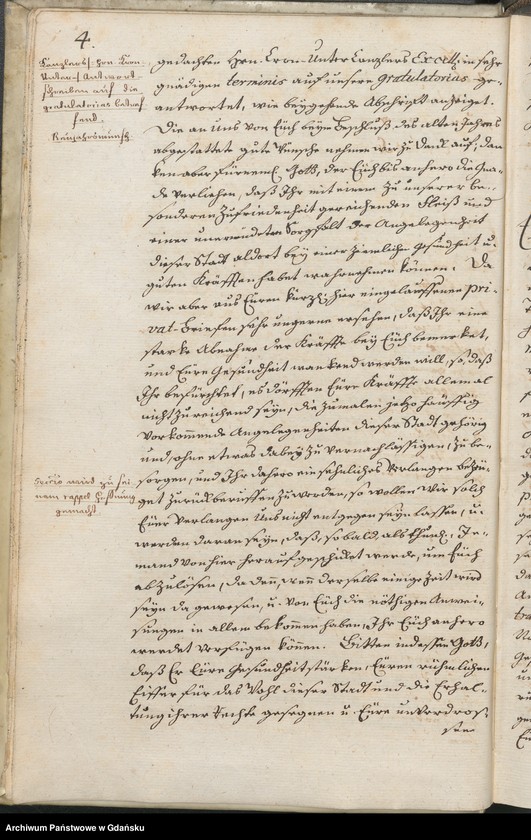 4.
Kanzlers /: Hrn. Kron-
Unter-/ Antwort
schreiben auf die
gratulatorias betref
fend.
Neujahrswunsch.
gedachten Hrn. Cron-Unter Canzlers Excell. in sehr
gnädigen terminis auf unsere gratulatorias ge-
antwortet, wie beygehende Abschrifft anzeiget.
Die an uns von Euch beym Beschluß des alten Jahres
abgestattete gute Wünsche nehmen wir zu Danck auf, dan
cken aber Gott, der Euch bis anhero die Gna-
de verliehen, daß Ihr mit einem zu unserer be-
sonderen Zufriedenheit gereichenden Fleiß und
einer unermüdeten Sorgfalt der Angelegenheit
dieser Stadt aldort bey einer ziemlichen Gesundheit u.
guten Kräfften habet wahrnehmen können. Da
wir aber aus Euren kürzl. hier eingelauffenen pri-
vat-Briefen sehr ungerne ersehen, daß Ihr eine
starke Abnahme der Kräffte bey Euch bemerket,
und Eure Gesundheit wankend werden will, so, daß
Ihr befürchtet, es dörfften Eure Kräffte allemal
nicht zureichend seyn, die zumalen jetzo häuffig
vorkommende Angelegenheiten dieser Stadt gehörig
und, ohne etwas dabey zu vernachlässigen, zu be-
sorgen, und Ihr dahero ein sehnliches Verlangen bezeu-
get zurückberuffen zu werden, so wollen wir solch
Euer Verlangen Uns nicht entgegen seyn lassen, u.
werden daran seyn, daß, sobald als thunl., Je-
mand von hier heraufgeschicket werde, um Euch
abzulösen, da denn, wenn derselbe einige Zeit wird
seyn da gewesen, u. von Euch die nöthigen Anwei-
sungen in allem bekommen haben, Ihr Euch anhero
werdet verfügen können. Bitten indessen Gott,
daß Er Eure Gesundheit stärken, Euren rühmlichen
Eiffer für das Wohl dieser Stadt und die Erhal-
tung ihrer Rechte gesegnen u. Eure unverdros-
sene
wird zu sei
nem rappel Hoffnung
gemacht.
Archiwum Państwowe w Gdańsku